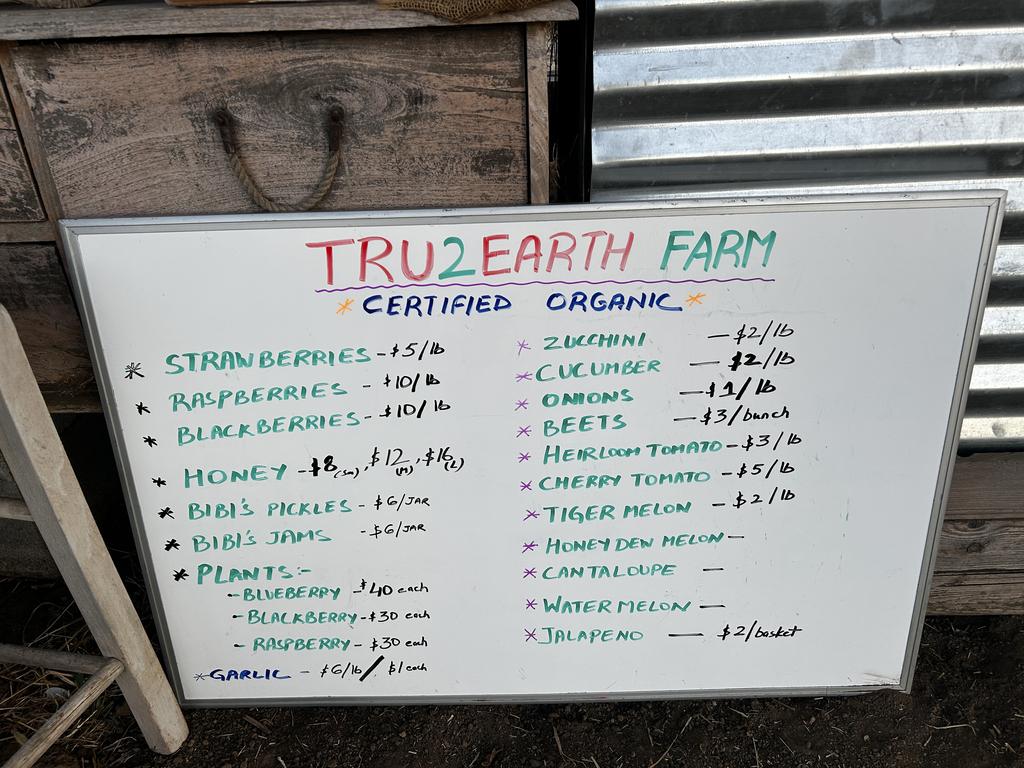 TRU2EARTH FARM
* CERTIFIED ORGANIC *
* STRAWBERRIES - $5/lb
* RASPBERRIES - $10/lb
* BLACKBERRIES - $10/lb
* HONEY - $8 (sm), $12 (M), $16 (L)
* BIBI'S PICKLES - $6/JAR
* BIBI'S JAMS - $6/JAR
* PLANTS:-
- BLUEBERRY - $40 each
- BLACKBERRY - $30 each
- RASPBERRY - $30 each
* GARLIC - $6/lb / $1 each
* ZUCCHINI — $2/lb
* CUCUMBER — $2/lb
* ONIONS — $1/lb
* BEETS — $3/bunch
* HEIRLOOM TOMATO - $3/lb
* CHERRY TOMATO - $5/lb
* TIGER MELON - $2/lb
* HONEYDEN MELON —
* CANTALOUPE —
* WATER MELON —
* JALAPENO — $2/basket